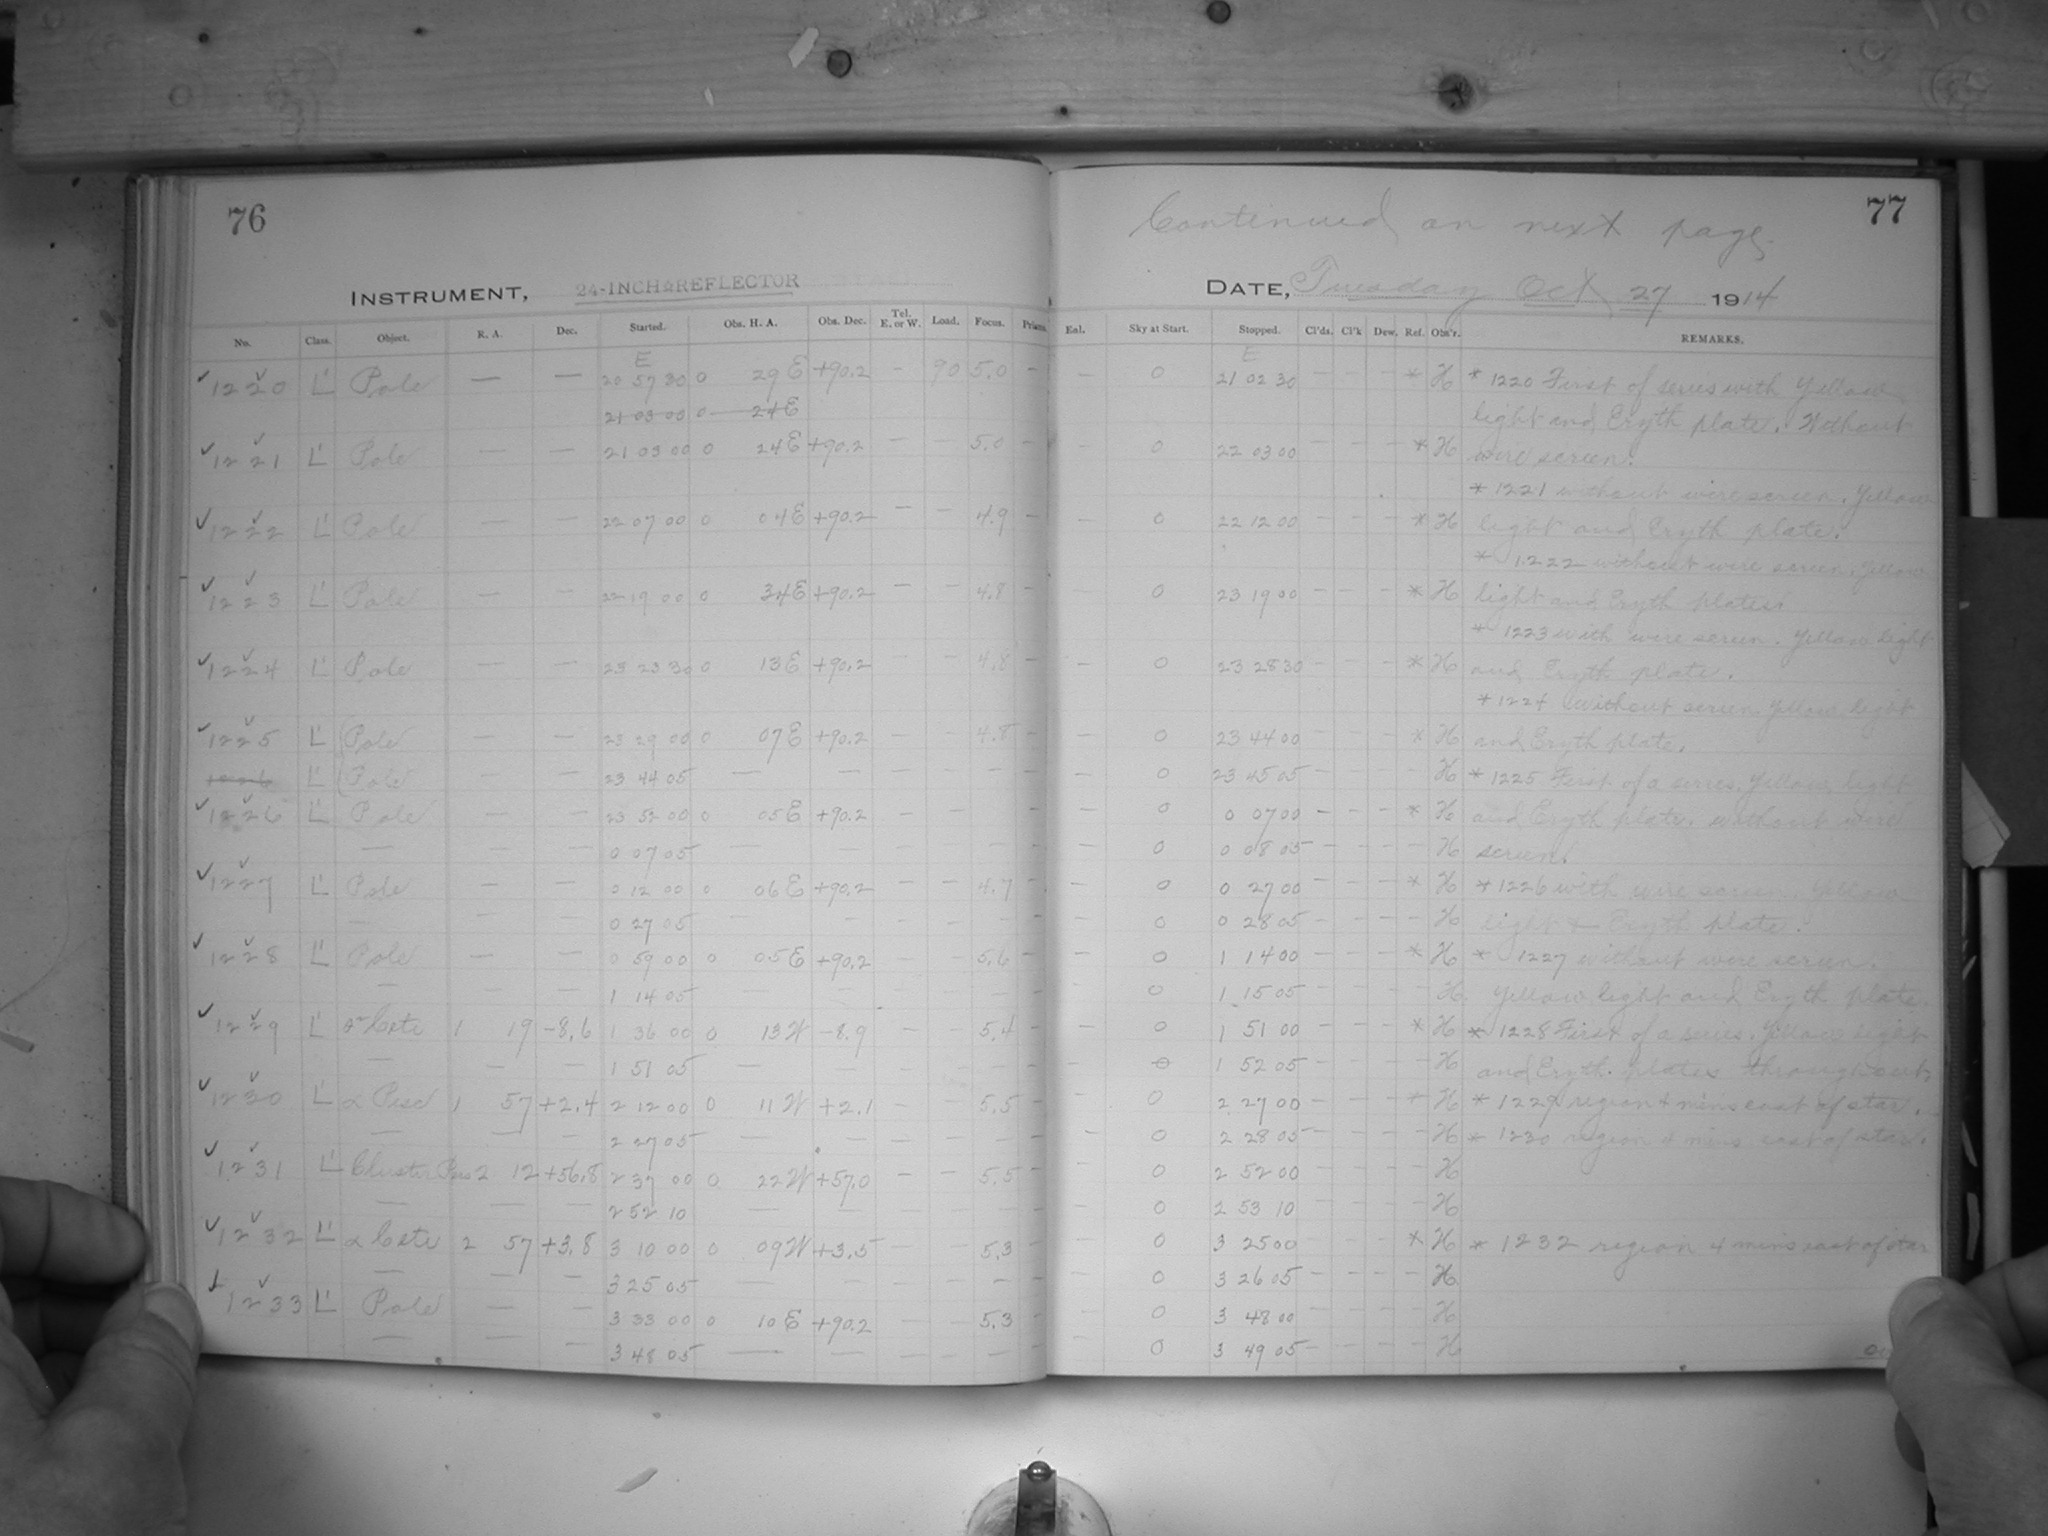 76
INSTRUMENT, 24-INCH REFLECTOR
No. Class. Object. R. A. Dec. Started. Obs. H. A. Obs. Dec. Tel. E. or W. Load. Focus. Prism.
E
1220 L' Pole — — 20 57 30 0 29 E +90.2 - 90 5.0 -
21 03 00 0 24 E
1221 L' Pole — — 21 03 00 0 24 E +90.2 - - 5.0 -
1222 L' Pole — — 22 07 00 0 04 E +90.2 - - 4.9 -
1223 L' Pole — — 22 19 00 0 34 E +90.2 - - 4.8 -
1224 L' Pole — — 23 23 30 0 13 E +90.2 - - 4.8 -
1225 L' Pole — — 23 29 00 0 07 E +90.2 - - 4.8 -
1226 L' Pole — — 23 44 05 — — - - - -
1226 L' Pole — — 23 52 00 0 05 E +90.2 - - - -
— — — 0 07 05 — — - - - -
1227 L' Pole — — 0 12 00 0 06 E +90.2 - - 4.7 -
— — — 0 27 05 — — - - - -
1228 L' Pole — — 0 59 00 0 05 E +90.2 - - 5.6 -
— — — 1 14 05 — — - - - -
1229 L' Ceti 1 19 -8.6 1 36 00 0 13 W -8.9 - 5.4 -
— — — 1 51 05 — — - - - -
1230 L' α Pisc 1 57 +2.4 2 12 00 0 11 W +2.1 - - 5.5 -
— — — 2 27 05 — — - - - -
1231 L' Cluster Pers 2 12 +56.8 2 37 00 0 22 W +57.0 - - 5.5 -
— — — 2 52 10 — — - - - -
1232 L' α Ceti 2 57 +3.8 3 10 00 0 09 W +3.5 - - 5.3 -
— — — 3 25 05 — — - - - -
1233 L' Pole — — 3 33 00 0 10 E +90.2 - - 5.3 -
— — — 3 48 05 — — - - - -
77
Continued on next page.
DATE, Tuesday Oct 27 1914
Eal. Sky at Start. Stopped. Cl'ds. Cl'k Dew. Ref. Obs'r. REMARKS.
E
- 0 21 02 30 - - - * H * 1220 First of series with Yellow
light and Eryth plate. Without
- 0 22 03 00 - - - * H wire screen.
* 1221 without wire screen. Yellow
- 0 22 12 00 - - - * H light and Eryth plate.
* 1222 without wire screen. Yellow
- 0 23 19 00 - - - * H light and Eryth plates.
* 1223 with wire screen. Yellow light
- 0 23 28 30 - - - * H and Eryth plate.
* 1224 without screen Yellow light
- 0 23 44 00 - - - * H and Eryth plate.
- 0 23 45 05 - - - H * 1225 First of a series. Yellow light
- 0 0 07 00 - - - * H and Eryth plate. without wire
- 0 0 08 05 - - - - H screen.
- 0 0 27 00 - - - * H * 1226 with wire screen. Yellow
- 0 0 28 05 - - - - H light & Eryth plate.
- 0 1 14 00 - - - * H * 1227 without wire screen.
- 0 1 15 05 - - - - H Yellow light and Eryth plate.
- 0 1 51 00 - - - * H * 1228 First of a series. Yellow light
- 0 1 52 05 - - - - H and Eryth. plates throughout.
- 0 2 27 00 - - - * H * 1229 region 4 mins east of star.
- 0 2 28 05 - - - - H * 1230 region 4 mins east of star.
- 0 2 52 00 - - - - H
- 0 2 53 10 - - - - H
- 0 3 25 00 - - - * H * 1232 region 4 mins east of star
- 0 3 26 05 - - - - H
- 0 3 48 00 - - - - H
- 0 3 49 05 - - - - H